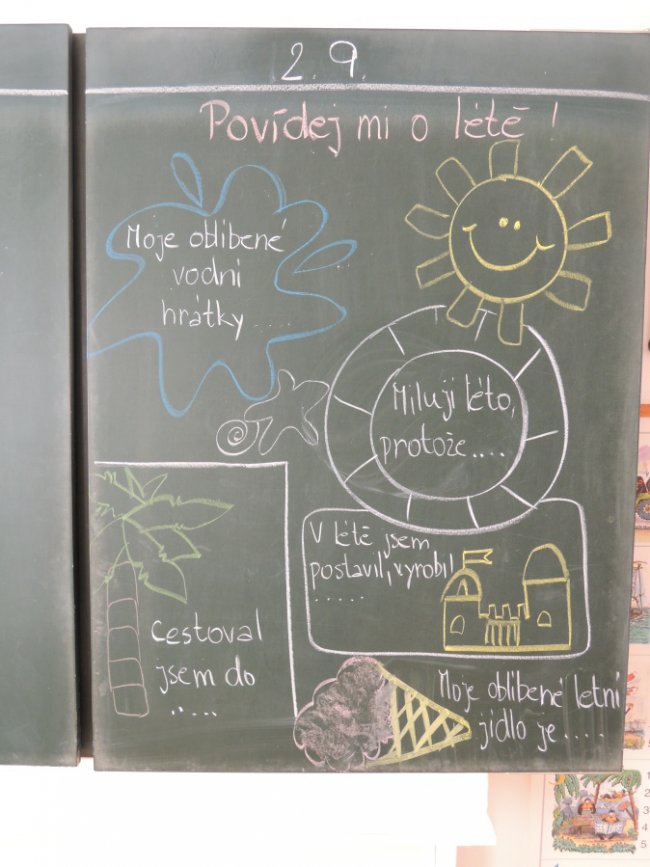 2. 9.
Povídej mi o létě!
Moje oblíbené
vodní
hrátky .....
Miluji léto,
protože....
V létě jsem
postavil, vyrobil
.....
Cestoval
jsem do
.....
Moje oblíbené letní
jídlo je ....
1
2
3
4
5